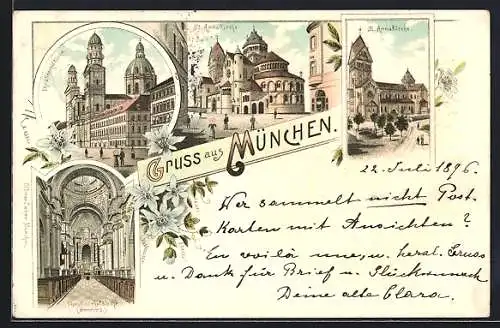 St. Annakirche
St. Annakirche
Gruss aus München.
22. Juli 1896.
Wer sammelt nicht Post-
karten mit Ansichten?
En voilà une, u. herzl. Gruss
u. Dank für Brief u. Glückwunsch
Deine alte Clara.